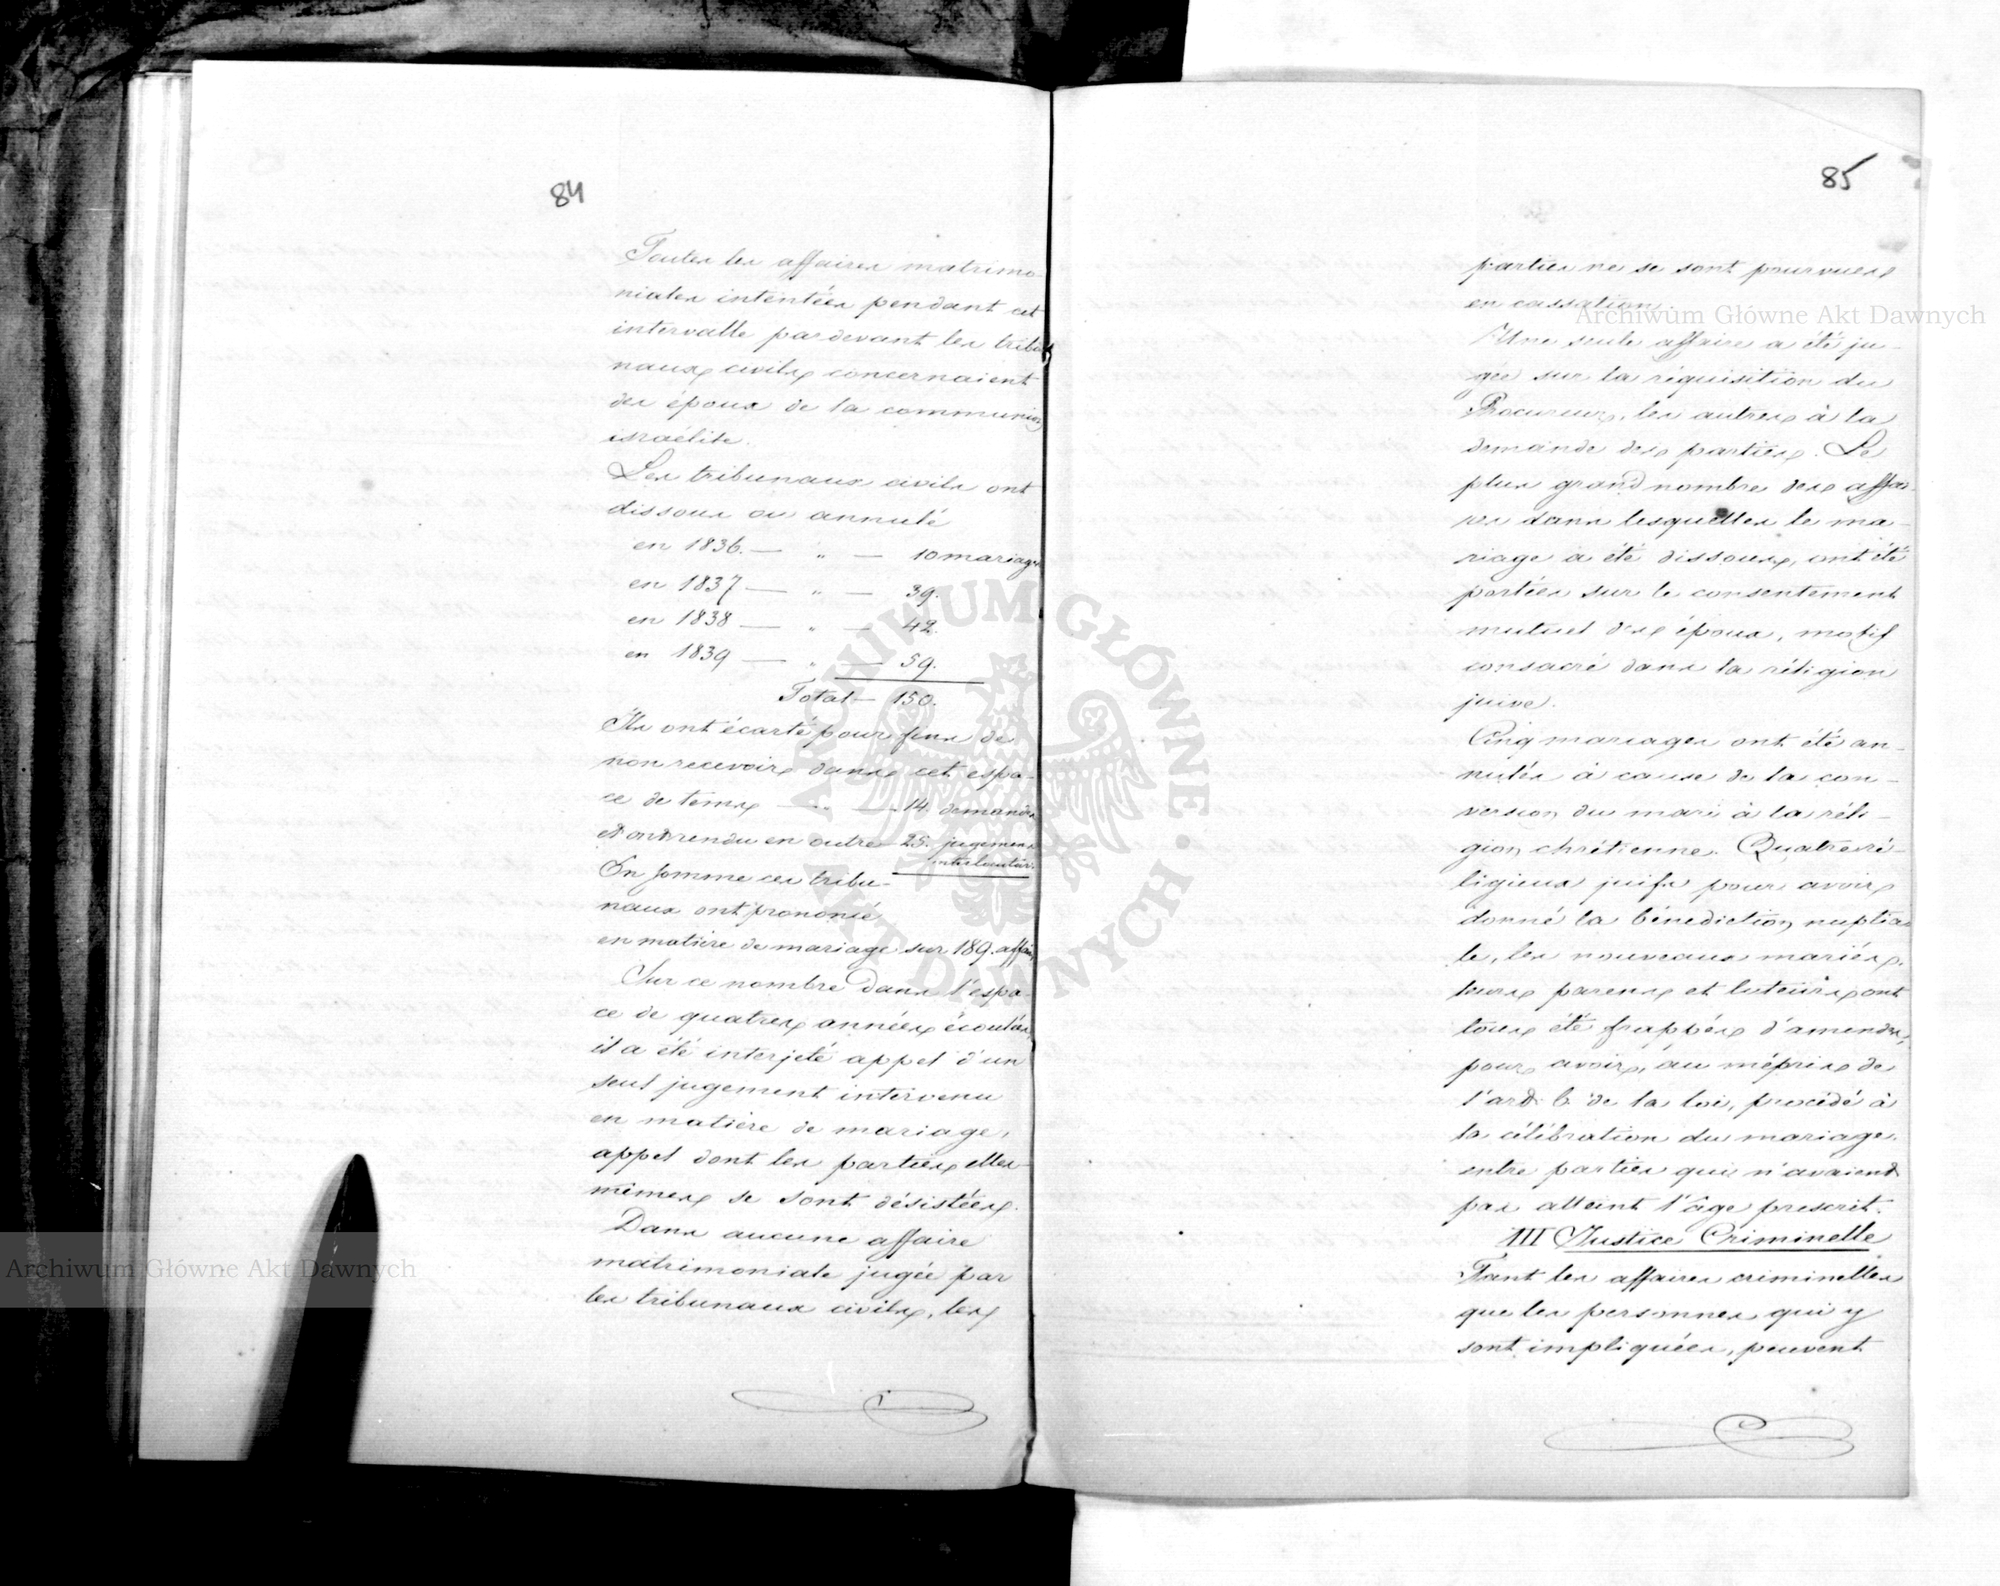 84
Toutes les affaires matrimo-
niales intentées pendant cet
intervalle par devant les tribu
naux civils concernaient
des époux de la communion
israélite.
Les tribunaux civils ont
dissous ou annulé
en 1836. — " — 10 mariages
en 1837 — " — 39.
en 1838 — " — 42.
en 1839 — " — 59.
Total — 150.
Ils ont écarté pour fins de
non recevoir dans cet espa-
ce de tems — " — 14. demandes
et ont rendu en outre 25. jugemens
interlocutoir.
En somme ces tribu-
naux ont prononcé
en matière de mariage sur 189. affair.
Sur ce nombre dans l'espa-
ce de quatres années écoulées,
il a été interjeté appel d'un
seul jugement intervenu
en matière de mariage,
appel dont les parties elles-
mêmes se sont désistées.
Dans aucune affaire
matrimoniale jugée par
les tribunaux civils, les
85
parties ne se sont pourvues
en cassation.
Une seule affaire a été ju-
gée sur la réquisition du
Procureur, les autres à la
demande des parties. Le
plus grand nombre des affai-
res dans lesquelles le ma-
riage a été dissous, ont été
portées sur le consentement
mutuel des époux, motif
consacré dans la réligion
juive.
Cinq mariages ont été an-
nulés à cause de la con-
version du mari à la réli-
gion chrétienne. Quatre ré-
ligieux juifs pour avoir
donné la bénediction nuptia-
le, les nouveaux mariés,
leurs parens et tuteurs ont
tous été frappés d'amendes,
pour avoir, au mépris de
l'art. 6 de la loi, procédé à
la célébration du mariage
entre parties qui n'avaient
pas atteint l'âge prescrit.
III Justice Criminelle
Tant les affaires criminelles
que les personnes qui y
sont impliquées, peuvent
Archiwum Główne Akt Dawnych
Archiwum Główne Akt Dawnych
ARCHIWUM GŁÓWNE · AKT DAWNYCH ·